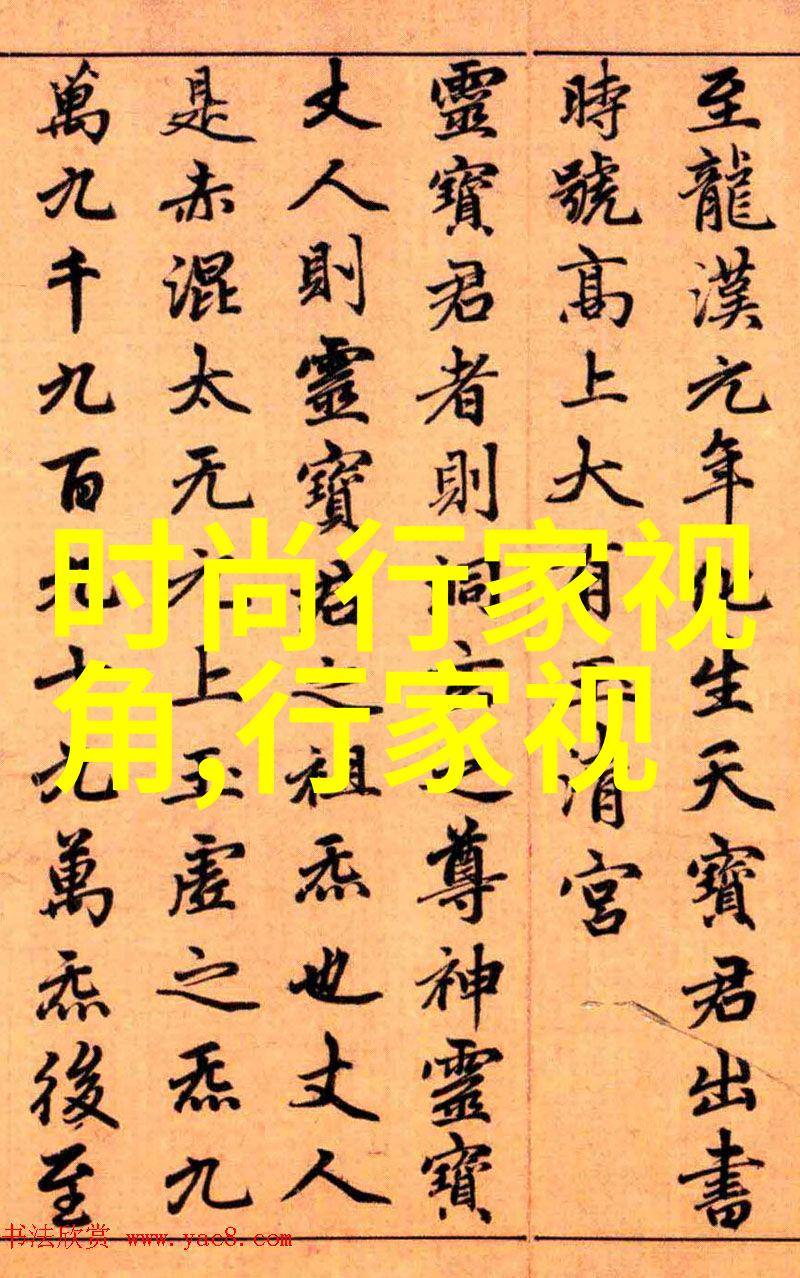 至龍漢元年化生天寶君出書
時號高上大有玉清宮
靈寶君者則洞玄之尊神靈寶
丈人則靈寶君之祖炁也丈人
是赤混太无元上玉虛之炁九
萬九千九百九十九萬炁後至
时尚行家视
角,行家视
书法欣赏 www.yac8.com